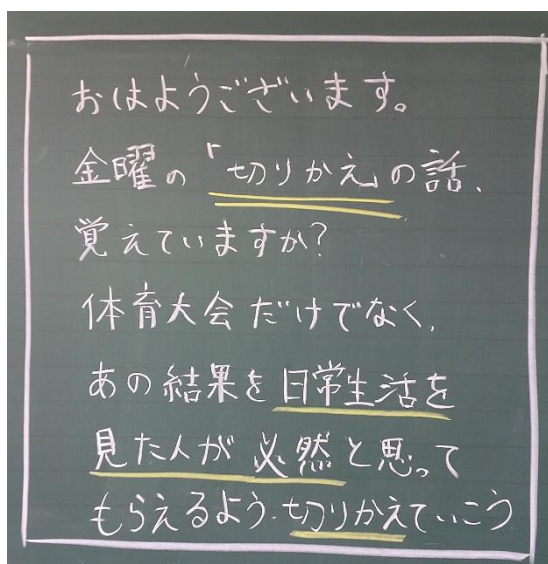 おはようございます。
金曜の「切りかえ」の話、
覚えていますか?
体育大会だけでなく、
あの結果を日常生活を
見た人が必然と思って
もらえるよう、切りかえていこう